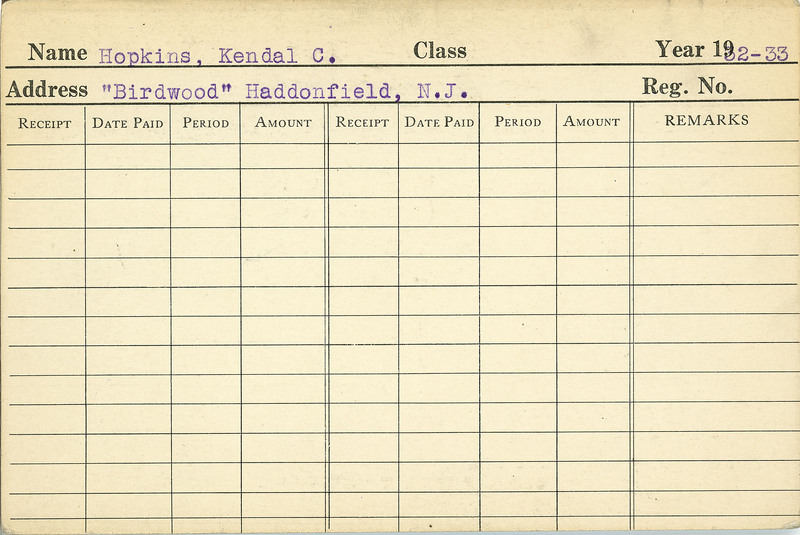 Name Hopkins, Kendal C. Class Year 1932-33
Address "Birdwood" Haddonfield, N.J. Reg. No.
RECEIPT DATE PAID PERIOD AMOUNT RECEIPT DATE PAID PERIOD AMOUNT REMARKS